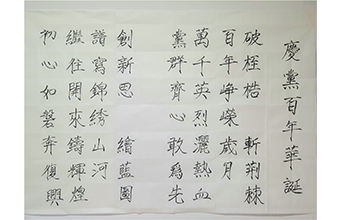 慶黨百年華誕
破桎梏 斬荊棘
百年崢嶸歲月
萬千英烈灑熱血
黨群齊心敢爲先
創新思 繪藍圖
譜寫錦綉山河
繼往開來鑄輝煌
初心如磐奔復興